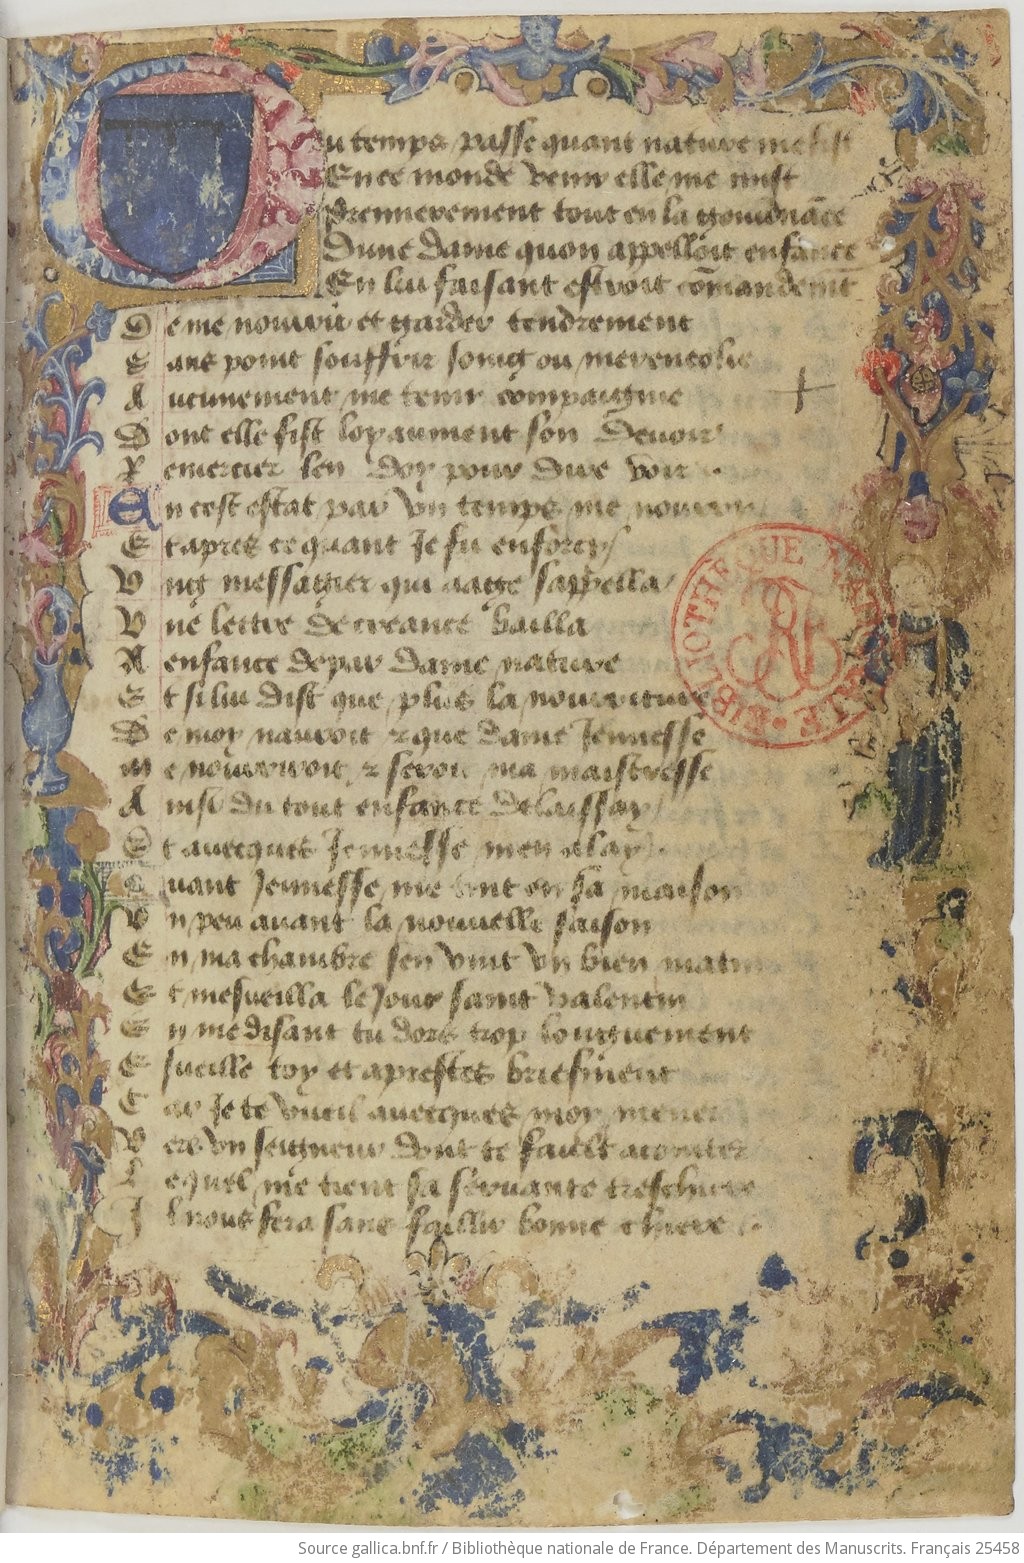 Ou temps passe quant nature me fist
En ce monde venir elle me mist
Premierement tout en la gouvernāce
Dune dame quon appelloit enfance
En lui faisant estroit cōmandemēt
De me nourrir et garder tendrement
Sans point souffrir soing ou merencolie
Aucunement me tenir compaignie
Dont elle fist loyaument son devoir
Remercier len doy pour dire voir
En cest estat par un temps me nourry
Et apres ce quant Je fu enforcy
Ung messagier qui aage sappella
Une lettre de creance bailla
A enfance de par dame nature
Et si lui dist que plus la nourriture
De moy nauroit & que dame Jeunesse
me nourriroit & seroit ma maistresse
Ainsi du tout enfance delaissay
Et avecques Jeunesse men alay
Quant Jeunesse me tint en sa maison
Un peu avant la nouvelle saison
En ma chambre sen vint un bien matin
Et mesveilla le Jour saint valentin
En me disant tu dors trop longuement
Esveille toy et aprestes briefment
Car Je te vueil avecques moy mener
Vers un seigneur dont te fault acointer
Lequel me tient sa servante treschiere
Il nous fera sans faillir bonne chiere
BIBLIOTHÈQUE NATIONALE
Source gallica.bnf.fr / Bibliothèque nationale de France. Département des Manuscrits. Français 25458